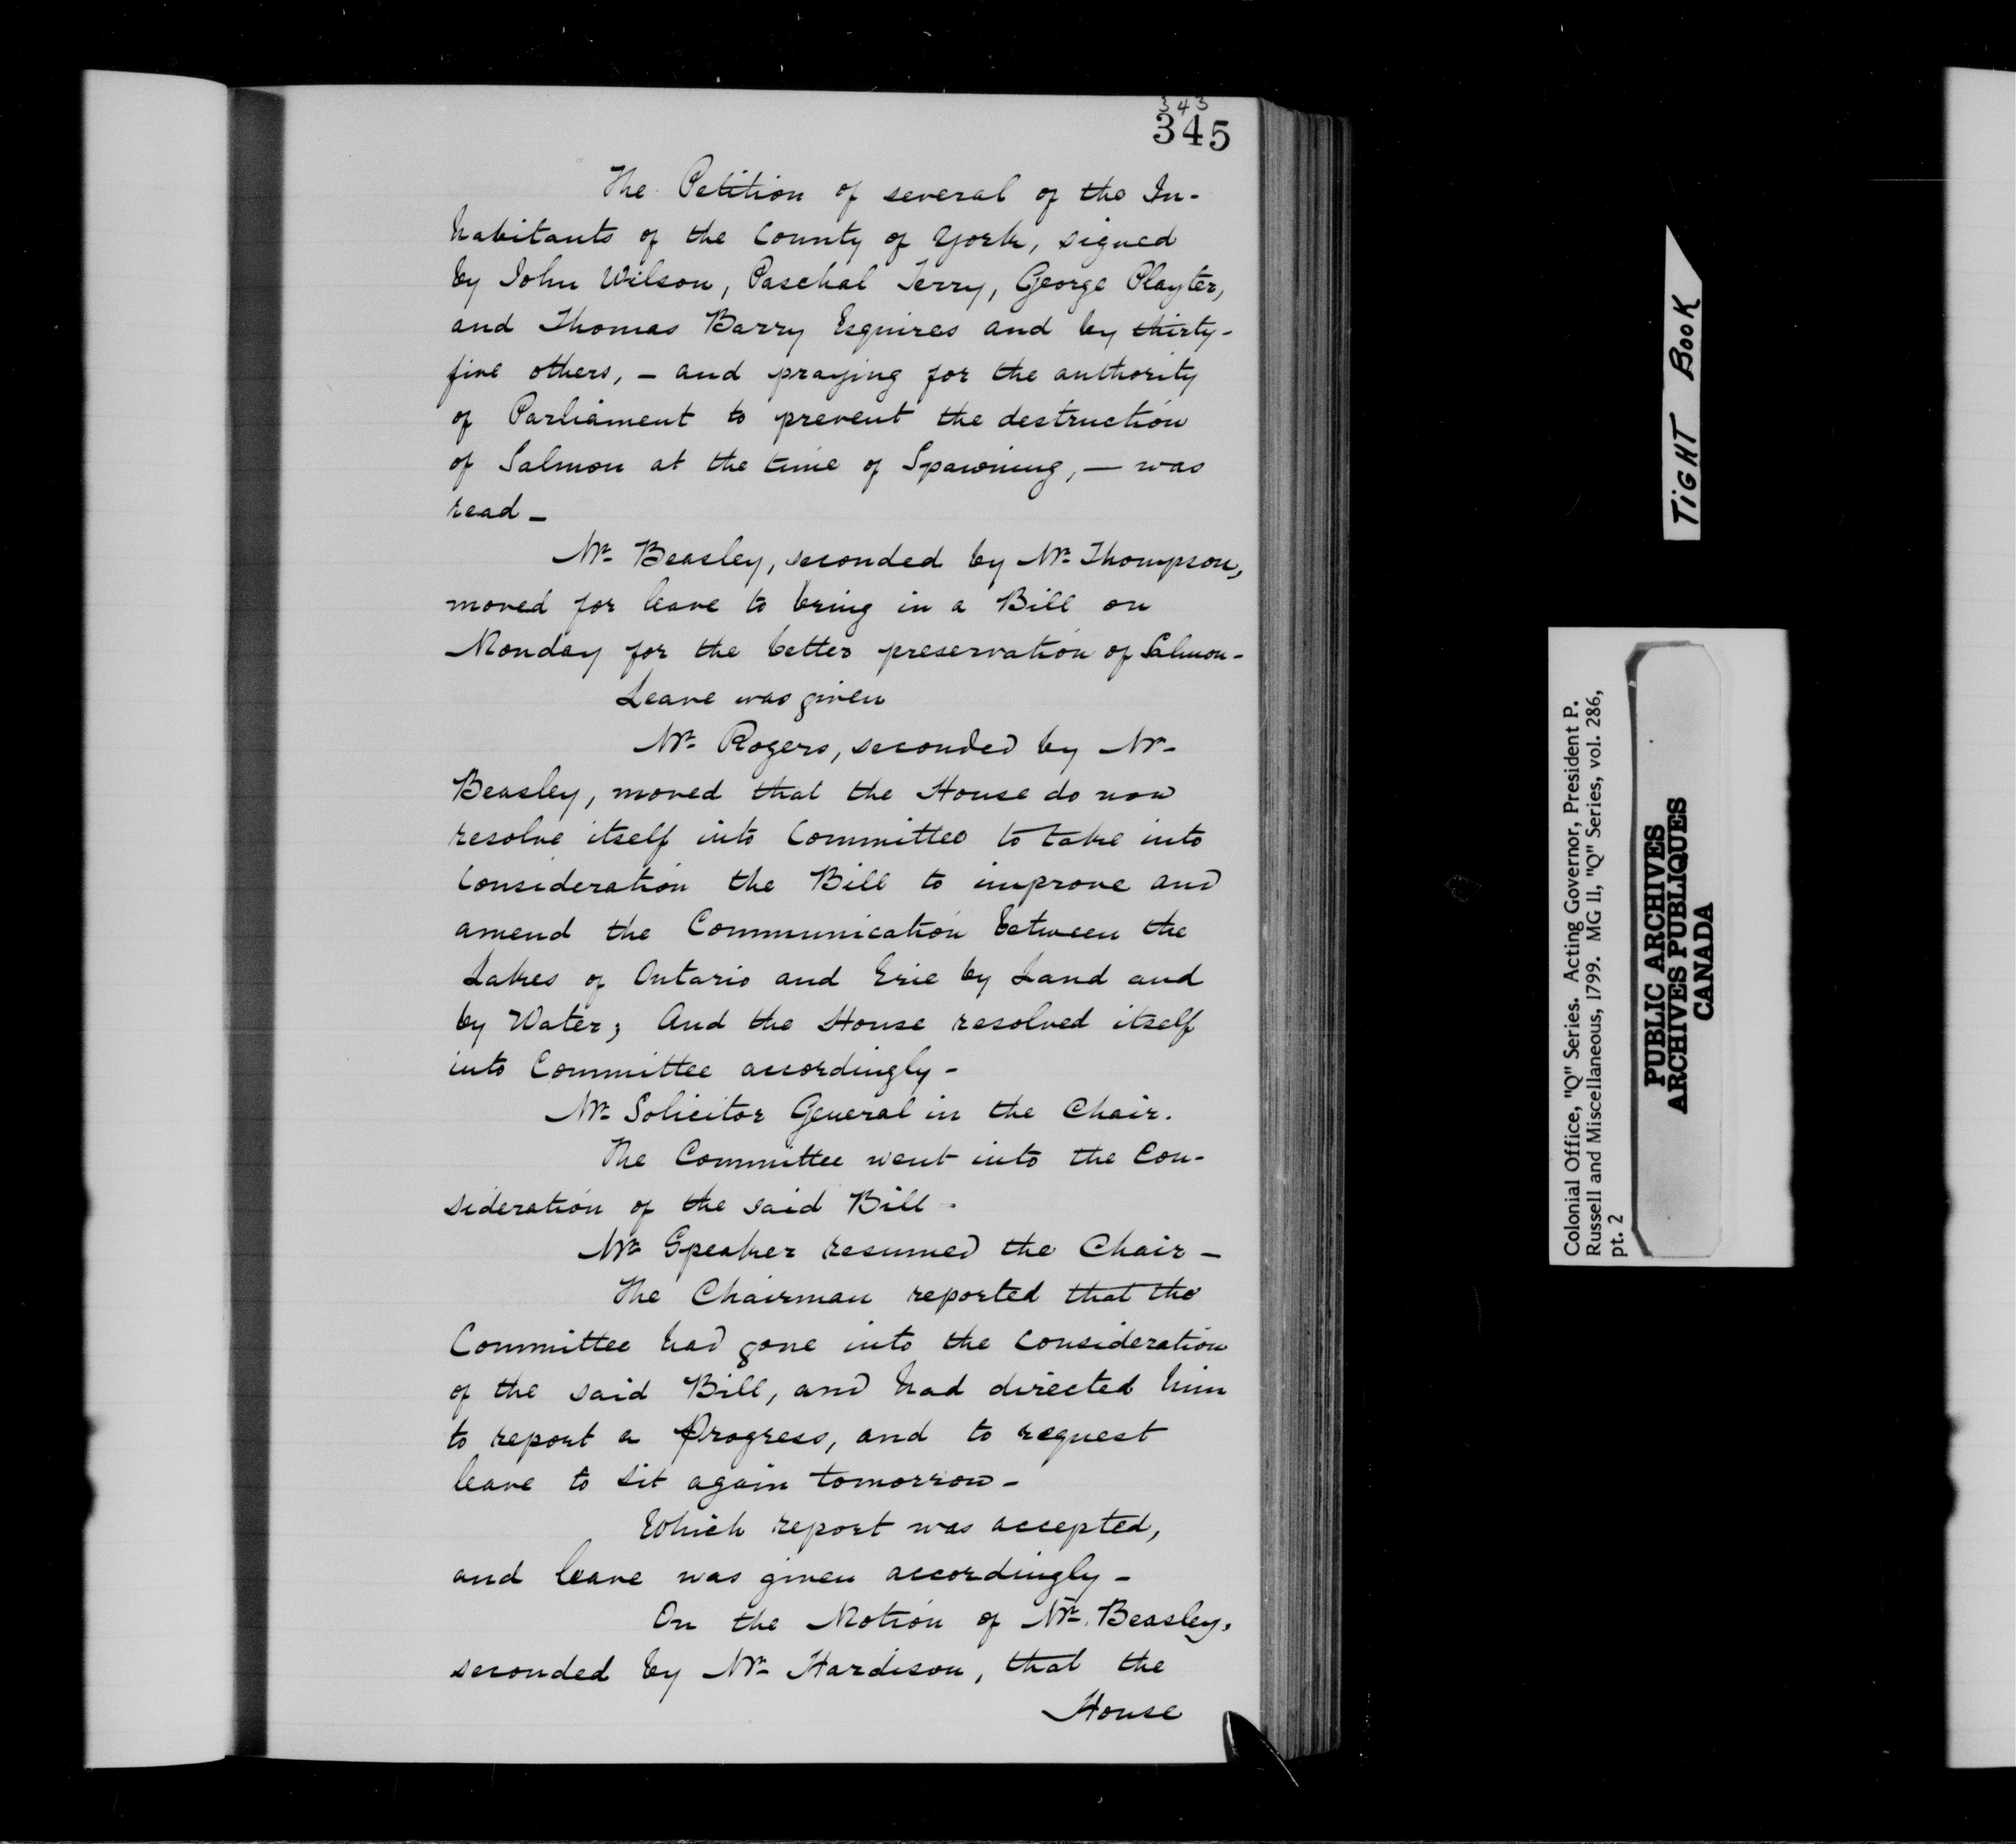 343
345
The Petition of several of the In-
habitants of the County of York, signed
by John Wilson, Paschal Terry, George Playter,
and Thomas Barry Esquires and by thirty-
five others, - and praying for the authority
of Parliament to prevent the destruction
of Salmon at the time of Spawning, - was
read -
Mr. Beasley, seconded by Mr. Thompson,
moved for leave to bring in a Bill on
Monday for the better preservation of Salmon -
Leave was given
Mr. Rogers, seconded by Mr.
Beasley, moved that the House do now
resolve itself into Committee to take into
Consideration the Bill to improve and
amend the Communication between the
Lakes of Ontario and Erie by Land and
by Water; And the House resolved itself
into Committee accordingly -
Mr. Solicitor General in the Chair.
The Committee went into the Con-
sideration of the said Bill -
Mr. Speaker resumed the Chair -
The Chairman reported that the
Committee had gone into the Consideration
of the said Bill, and had directed him
to report a Progress, and to request
leave to sit again tomorrow -
Which report was accepted,
and leave was given accordingly -
On the Motion of Mr. Beasley,
seconded by Mr. Hardison, that the
House
TIGHT BOOK
Colonial Office, "Q" Series. Acting Governor, President P.
Russell and Miscellaneous, 1799. MG 11, "Q" Series, vol. 286,
pt. 2
PUBLIC ARCHIVES
ARCHIVES PUBLIQUES
CANADA